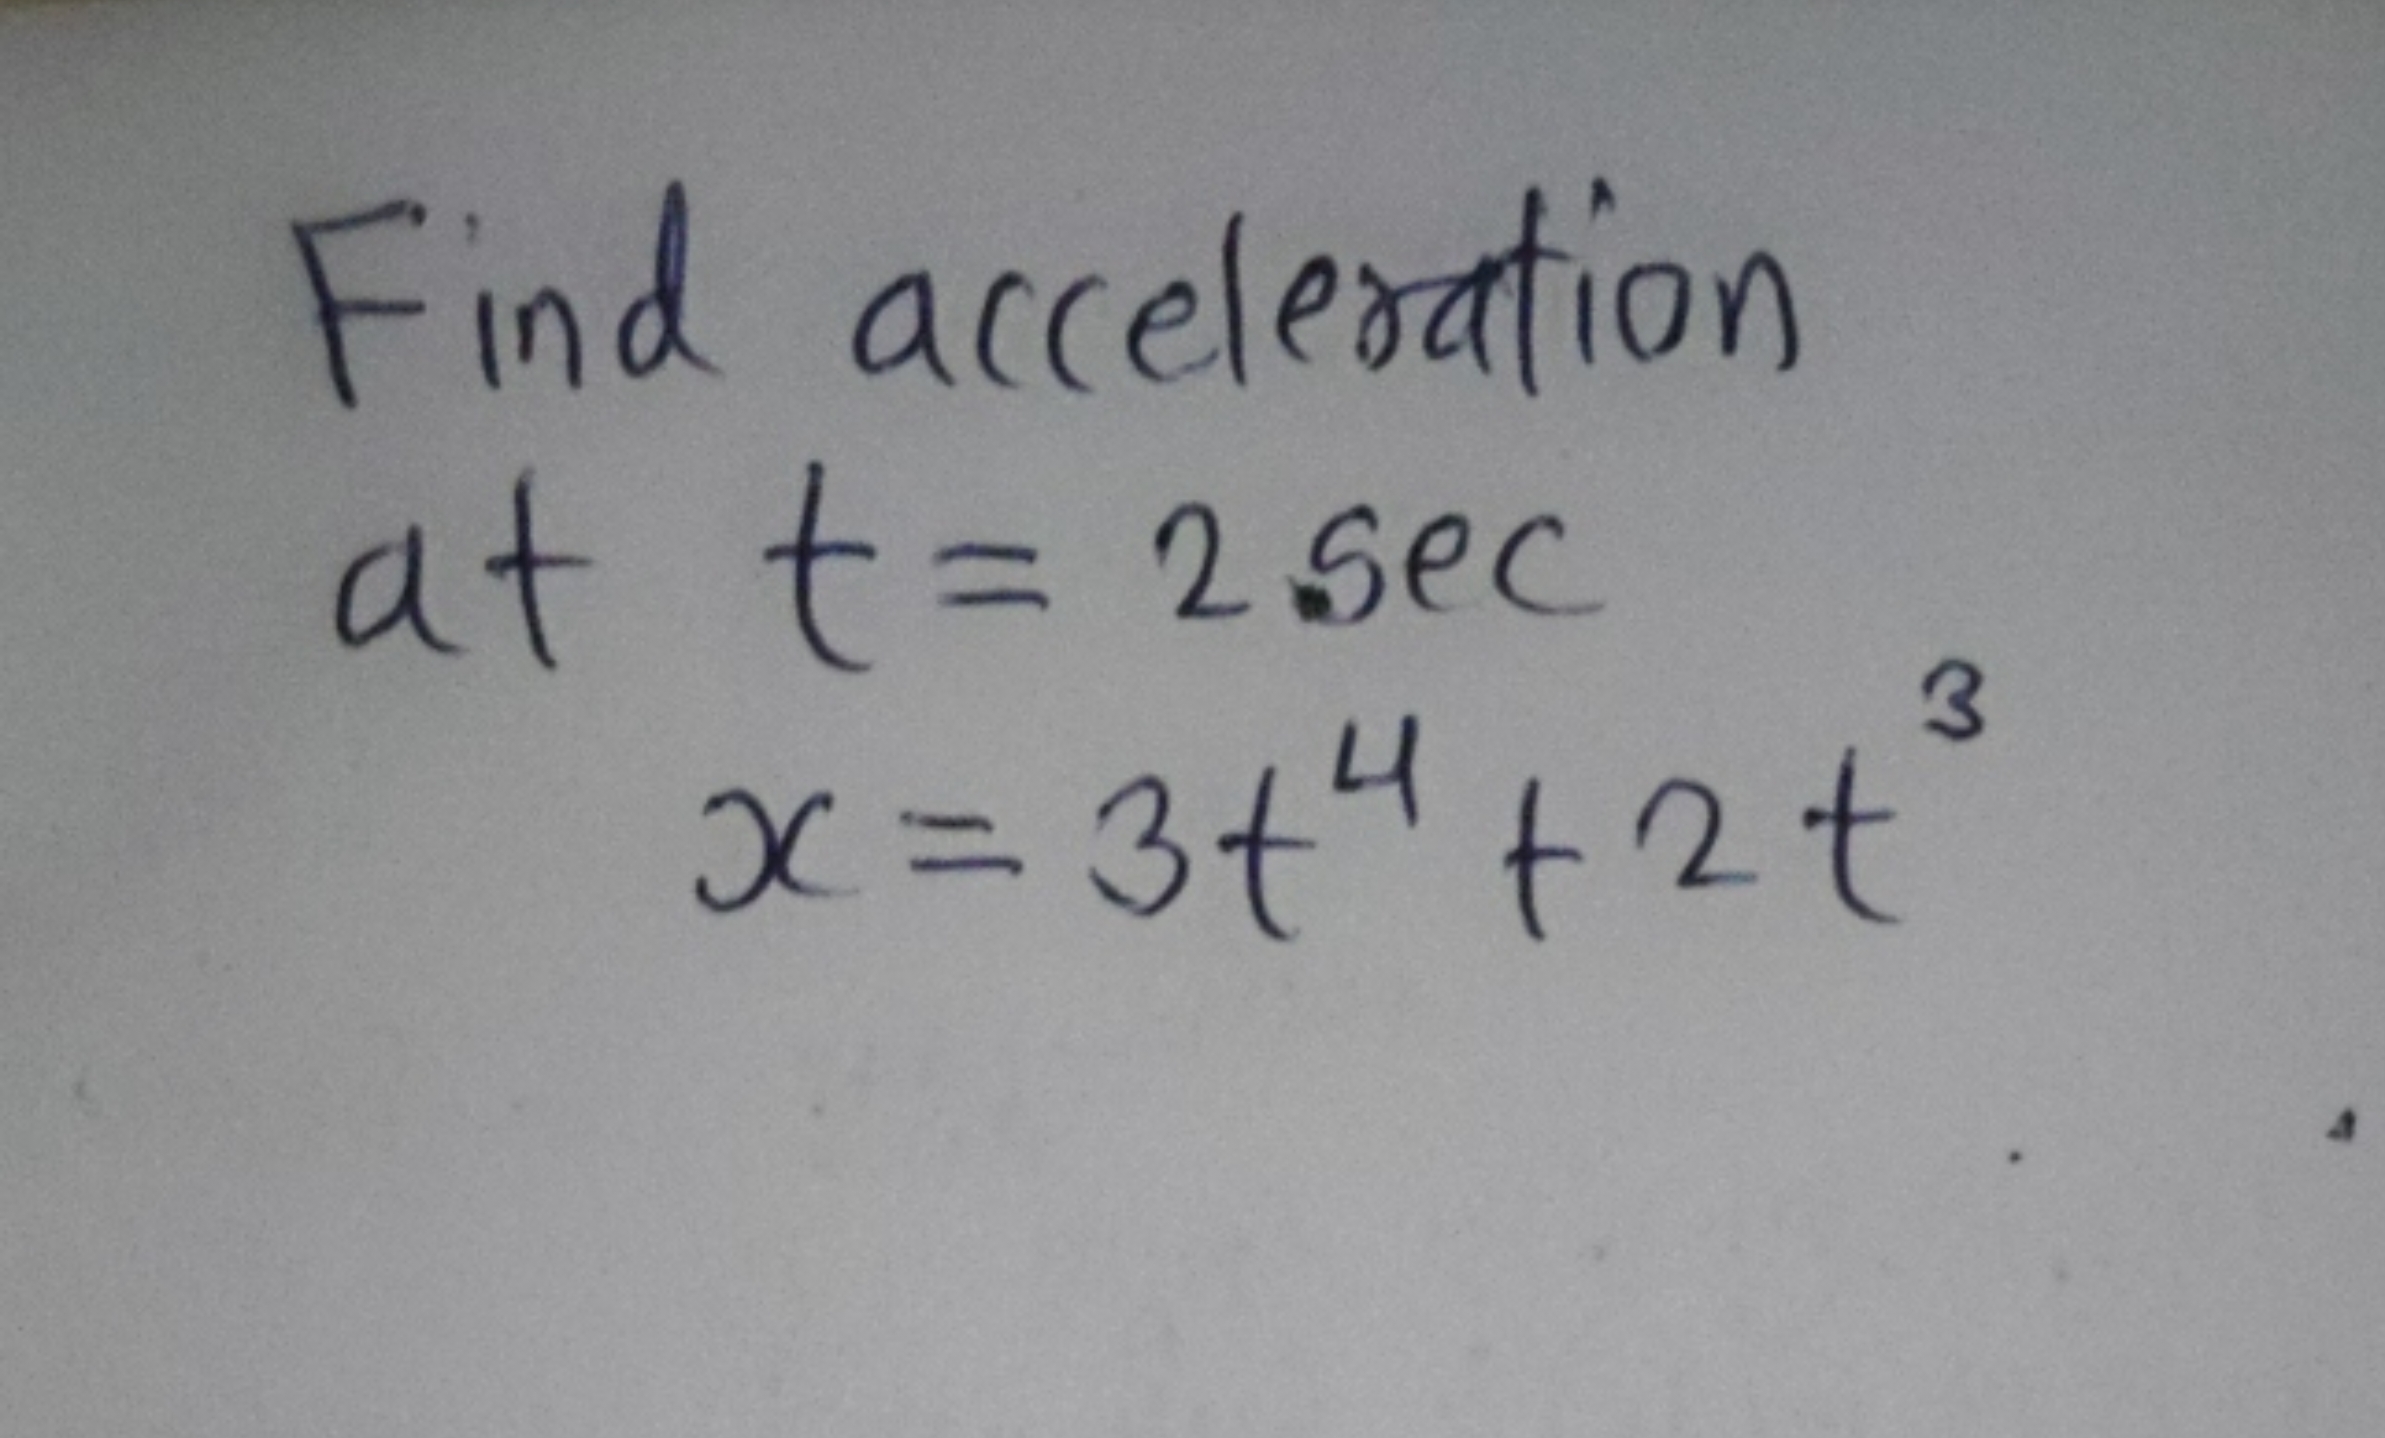 Find acceleration
at t = 2 sec
x = 3t⁴ + 2t³